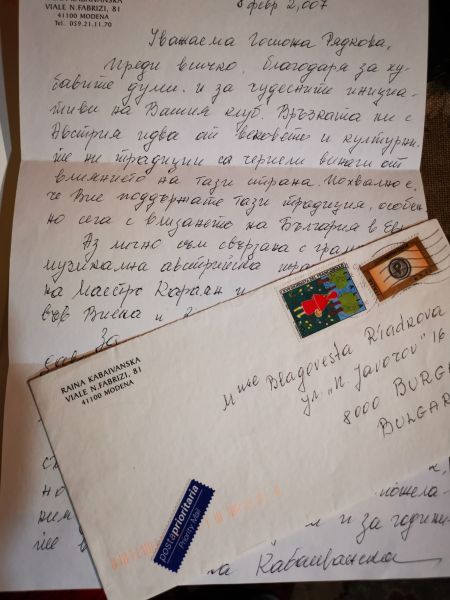 RAINA KABAIVANSKA
VIALE N. FABRIZI, 81
41100 MODENA
Tel. 059.21.11.70
8 февр 2,007
Уважаема Госпожа Рядкова,
Преди всичко, благодаря за ху-
бавите думи и за чудесните инициа-
тиви на Вашия клуб. Връзката ни с
Австрия идва от вековете и културни-
те ни традиции са черпели винаги от
влиянието на тази страна. Похвално е,
че Вие поддържате тази традиция, особе-
но сега с влизането на България в Евр
Аз лично съм свързана с
музикална австрийска
на Маестро Караян и
във Виена и
За
RAINA KABAIVANSKA
VIALE N. FABRIZI, 81
41100 MODENA
Mme Blagovesta Riadkova
ул. „П. Javorov" 16
8000 BURG
BULGAR
postaprioritaria
Priority Mail
пожела-
и за години-
те
на Кабаиванска